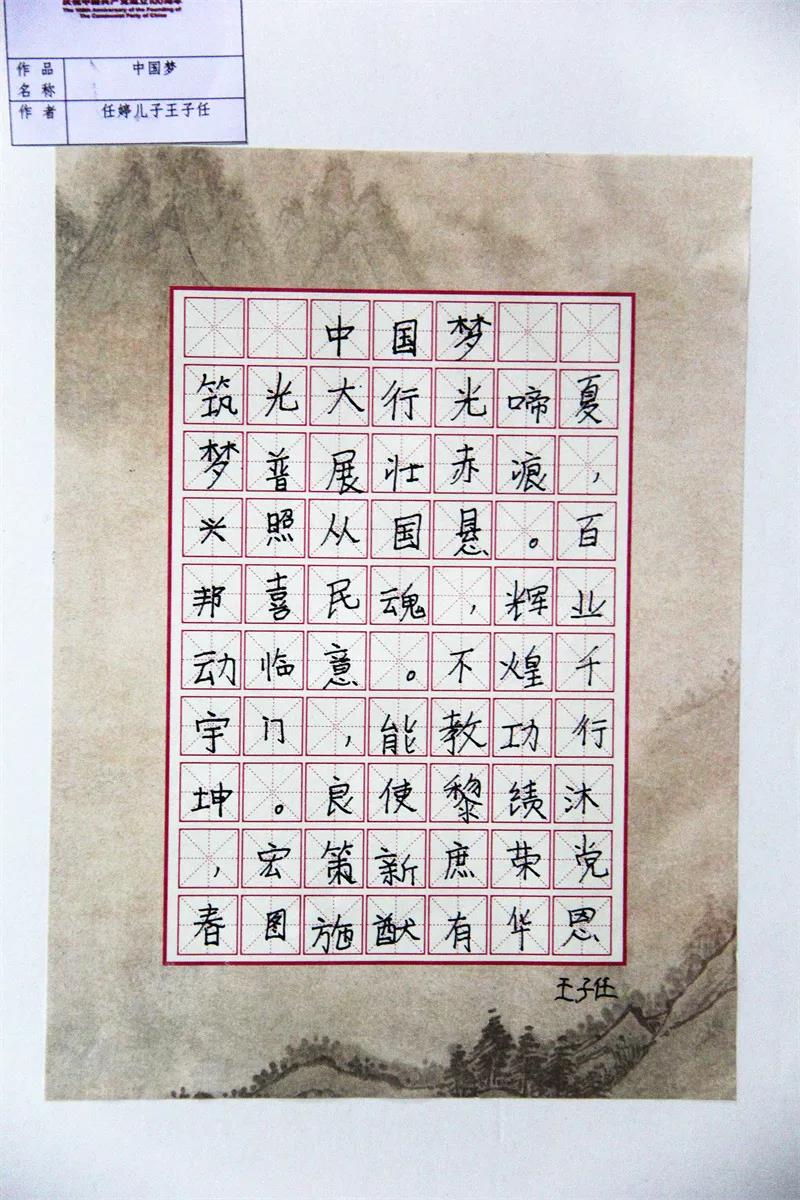 庆祝中国共产党成立100周年
The 100th Anniversary of the Founding of
The Communist Party of China
作品名称 中国梦
作者 任婷儿子王子任
中国梦
筑梦兴邦动宇坤，春
光普照喜临门。宏图
大展从民意，良策施
行壮国魂。能使新猷
光赤悬，不教黎庶有
啼痕。辉煌功绩荣华
夏，百业千行沐党恩
王子任